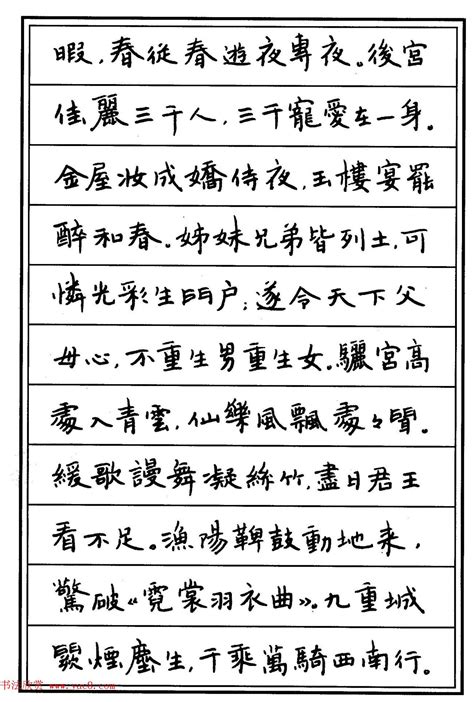 暇,春從春遊夜專夜。後宮
佳麗三千人,三千寵愛在一身。
金屋妝成嬌侍夜,玉樓宴罷
醉和春。姊妹兄弟皆列土,可
憐光彩生門户;遂令天下父
母心,不重生男重生女。驪宮高
處入青雲,仙樂風飄處々聞。
緩歌謾舞凝絲竹,盡日君王
看不足。漁陽鞞鼓動地来,
驚破《霓裳羽衣曲》。九重城
闕煙塵生,千乘萬騎西南行。
书法欣赏 www.yac8.com